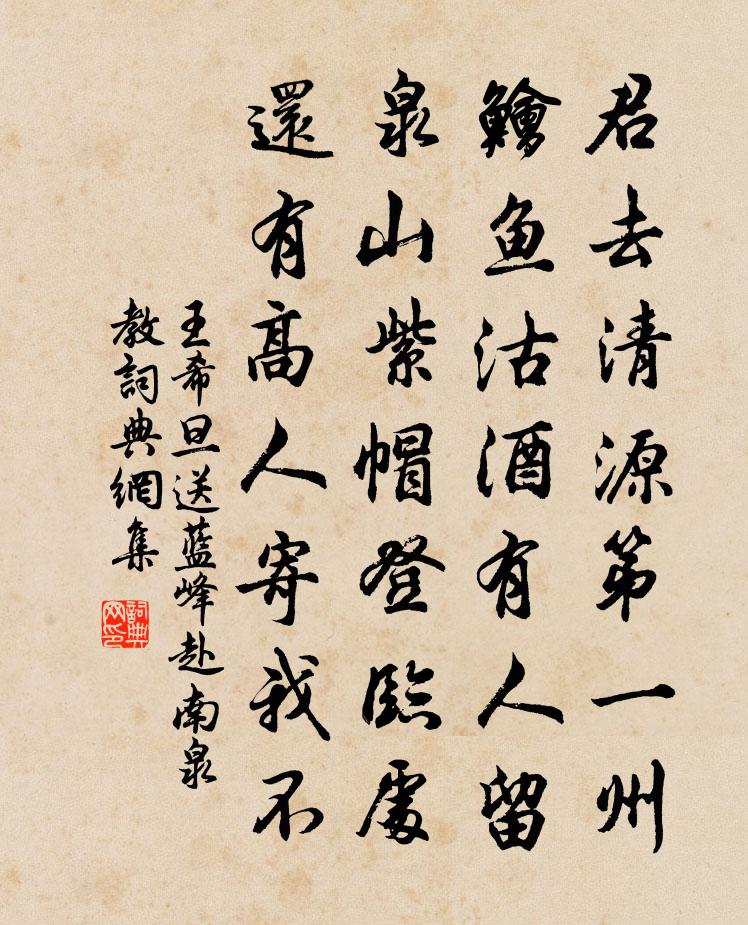 君去清源第一州
鱠魚沽酒有人留
泉山紫帽登臨處
還有高人寄我不
王希旦送藍峰赴南泉
教詞典網集
詞典
网印